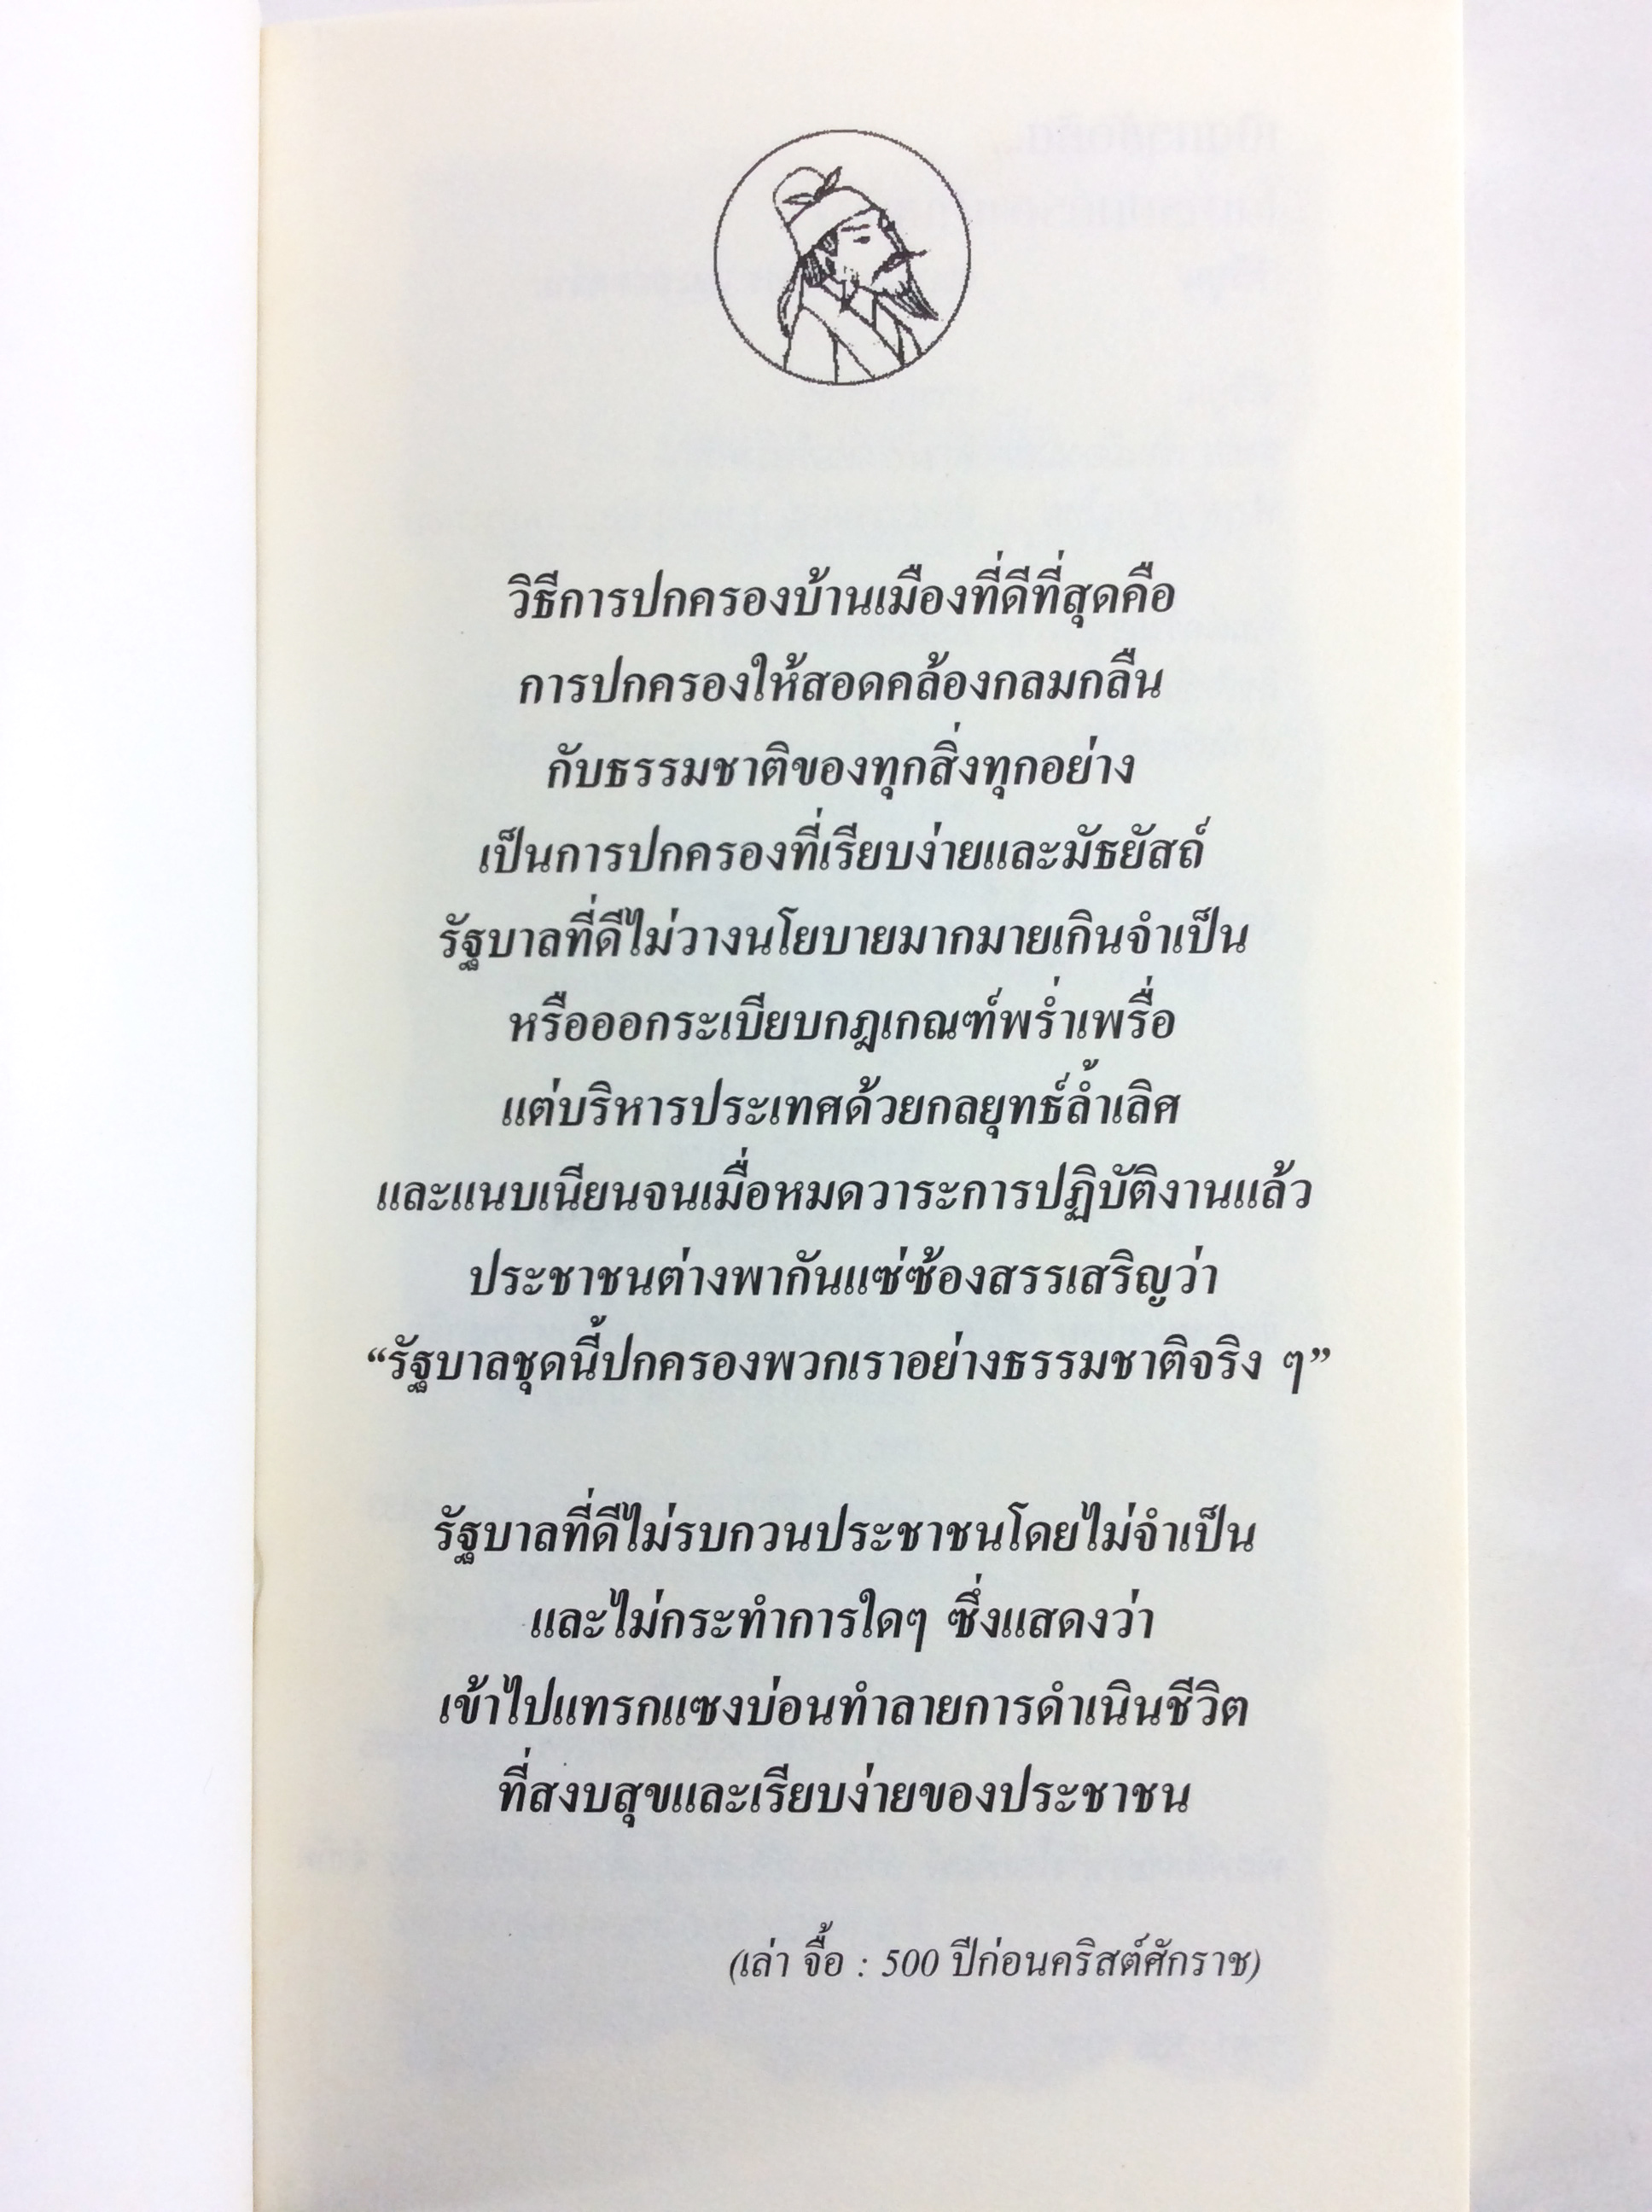 วิธีการปกครองบ้านเมืองที่ดีที่สุดคือ
การปกครองให้สอดคล้องกลมกลืน
กับธรรมชาติของทุกสิ่งทุกอย่าง
เป็นการปกครองที่เรียบง่ายและมัธยัสถ์
รัฐบาลที่ดีไม่วางนโยบายมากมายเกินจำเป็น
หรือออกระเบียบกฎเกณฑ์พร่ำเพรื่อ
แต่บริหารประเทศด้วยกลยุทธ์ล้ำเลิศ
และแนบเนียนจนเมื่อหมดวาระการปฏิบัติงานแล้ว
ประชาชนต่างพากันแซ่ซ้องสรรเสริญว่า
“รัฐบาลชุดนี้ปกครองพวกเราอย่างธรรมชาติจริง ๆ”
รัฐบาลที่ดีไม่รบกวนประชาชนโดยไม่จำเป็น
และไม่กระทำการใดๆ ซึ่งแสดงว่า
เข้าไปแทรกแซงบ่อนทำลายการดำเนินชีวิต
ที่สงบสุขและเรียบง่ายของประชาชน
(เล่า จื้อ : 500 ปีก่อนคริสต์ศักราช)